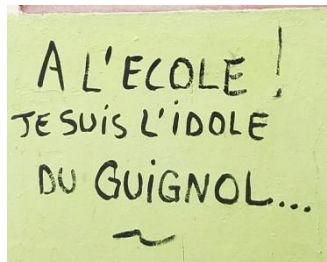 A L'ECOLE !
JE SUiS L'iDOLE
DU GUiGNOL....
~